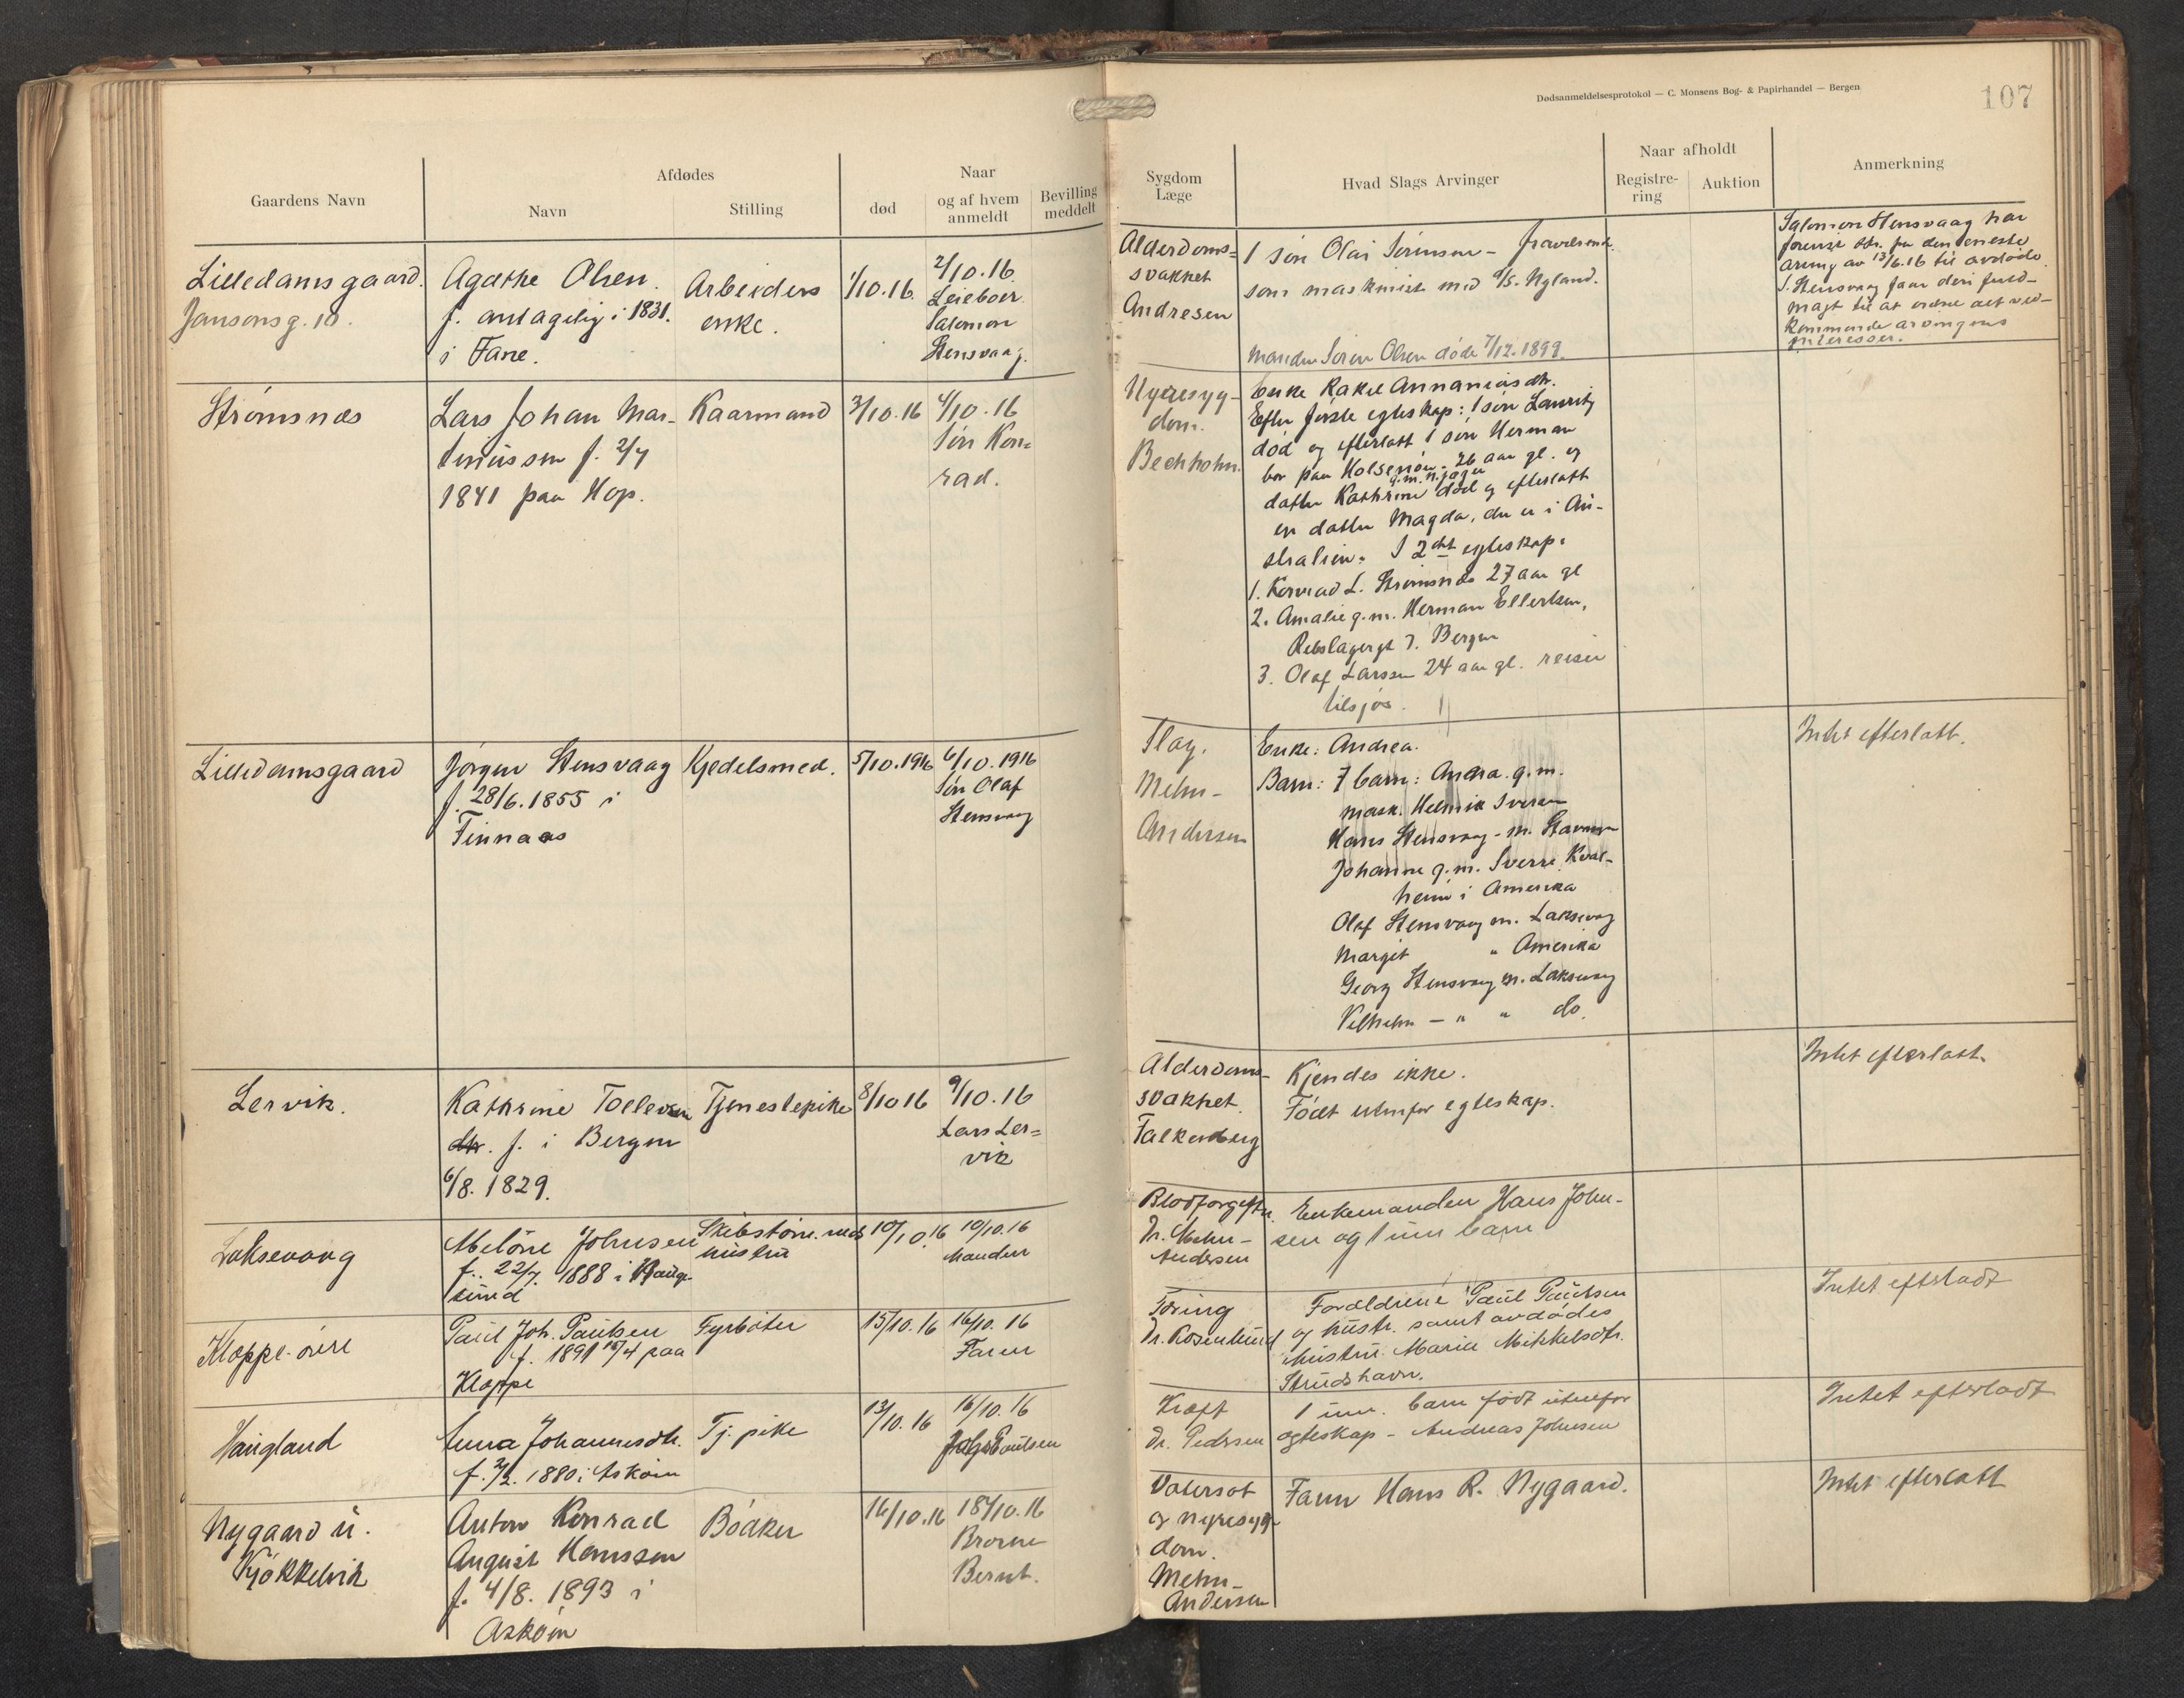 Dødsanmeldelsesprotokol — C. Monsens Bog- & Papirhandel — Bergen
107
Gaardens Navn
Afdødes
Navn
Stilling
Naar
død
og af hvem
anmeldt
Bevilling
meddelt
Sygdom
Læge
Hvad Slags Arvinger
Naar afholdt
Registre-
ring
Auktion
Anmerkning
Lilledamsgaard.
Jansonsg. 10.
Agathe Olsen.
f. antagelig i 1831.
i Fane.
Arbeiders
enke.
1/10.16.
2/10.16.
Leieboer
Salomon
Stensvaag.
Alderdoms=
svakhet
Andresen
1 søn Olai Sørensen - fraværende
som maskinist med S/S. Nyland.
Manden Søren Olsen døde 7/12.1899.
Salomon Stensvaag har
av 13/6.16 til avdøde.
S. Stensvaag faar den fuld-
magt til at ordne det ved-
kommende arvingens
interesser.
Strømsnæs
Lars Johan Mar-
tiniussen f. 2/7
1841 paa Hop.
Kaarmand
3/10.16
4/10.16
Søn Kon=
rad.
Nyresyg-
dom.
Bechholm.
Enke Rakel Annaniasdtr.
Efter første egteskap: 1 søn Lauritz
død og efterlatt 1 søn Herman
bor paa Holsenøen. 26 aar gl. og
datter Kathrine død og efterlatt
en datter Magda, der er i Au-
stralien. I 2det egteskap:
1. Konrad L. Strømsnæs 27 aar gl
2. Amalie g.m. Herman Ellertsen,
Rebslagergt 7. Bergen
3. Olaf Larssen 24 aar gl. reiser
tilsjøs.
Lilledamsgaard
Jørgen Stensvaag
f. 28/6.1855 i
Finnaas
Kjedelsmed.
5/10.1916
6/10.1916
Søn Olaf
Stensvaag
Slag.
Mehn-
Andersen
Enke: Andrea.
Barn: 7 barn: Anna g.m.
mask. Helmik Iversen
Hans Stensvaag - m.
Johanne g.m. Sverre Kval-
heim i Amerika
Olaf Stensvaag m. Laksevaag
Margit " Amerika
Georg Stensvaag m. Laksevaag
Vilhelm — " " do.
Intet efterlatt.
Lervik.
Kathrine Tollevsen
dtr. f. i Bergen
6/8.1829.
Tjenestepike
8/10 16
9/10.16
Lars Ler=
vik
Alderdoms-
svakhet.
Falkenberg
Kjendes ikke.
Født utenfor egteskap.
Intet efterlatt.
Laksevaag
Meløne Johnsen
f. 22/7. 1888 i Hauge-
sund
Skibstøm.mds
hustru
10/10.16
10/10.16
Manden
Blodforgiftn.
Dr. Mehn-
Andersen
Enkemanden Hans John-
sen og 1 um barn
Kloppe-øvre
Paul Joh. Paulsen
f. 1891 18/4 paa
Kloppe
Fyrbøter
15/10.16
16/10.16
Faren
Tæring
Dr. Rosenlund
Forældrene Paul Paulsen
og hustr. samt avdødes
hustru Maria Mikkelsdtr.
Strudshavn.
Intet efterladt
Haugland
Anna Johannesdtr.
f. 2/2. 1880 i Askøen
Tj. pike
13/10.16
16/10.16
Kræft
Dr. Pedersen
1 um. barn født utenfor
egteskap - Andreas Johnsen
Intet efterladt
Nygaard u.
Kjøkkelvik
Anton Konrad
August Hanssen
f. 4/8. 1893 i
Askøen
Bødker
16/10.16
18/10.16
Broren
Bernt.
Vatersot
og nyresyg-
dom.
Mehn-
Andersen
Faren Hans R. Nygaard.
Intet efterlatt